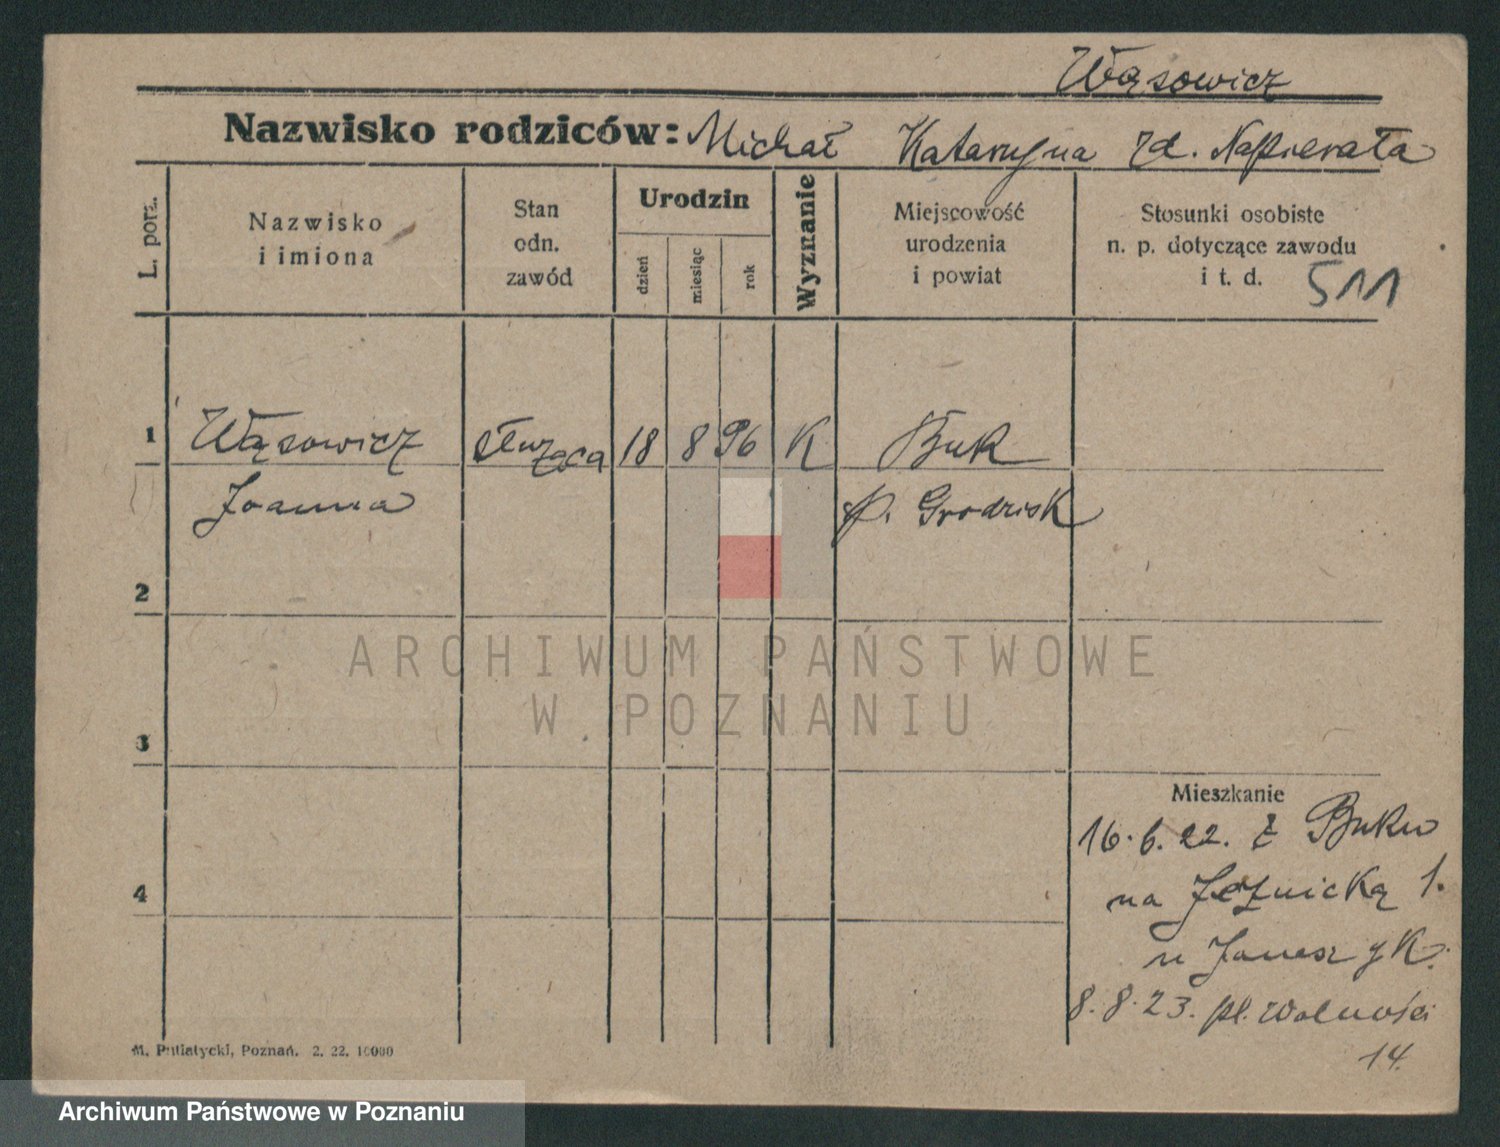 Wąsowicz
Nazwisko rodziców: Michał Katarzyna zd. Napierała
L. porz.
Nazwisko
i imiona
Stan
odn.
zawód
Urodzin
dzień
miesiąc
rok
Wyznanie
Miejscowość
urodzenia
i powiat
Stosunki osobiste
n. p. dotyczące zawodu
i t. d.
511
1 Wąsowicz służąca 18 8 96 K Buk
Joanna p. Grodzisk
2
3
4
Mieszkanie
16.6.22. z Buku
na Jeżnicką 1.
u
8.8.23. pl. Wolności
14.
M. Putiatycki, Poznań. 2. 22. 10000
ARCHIWUM PAŃSTWOWE
W POZNANIU
Archiwum Państwowe w Poznaniu